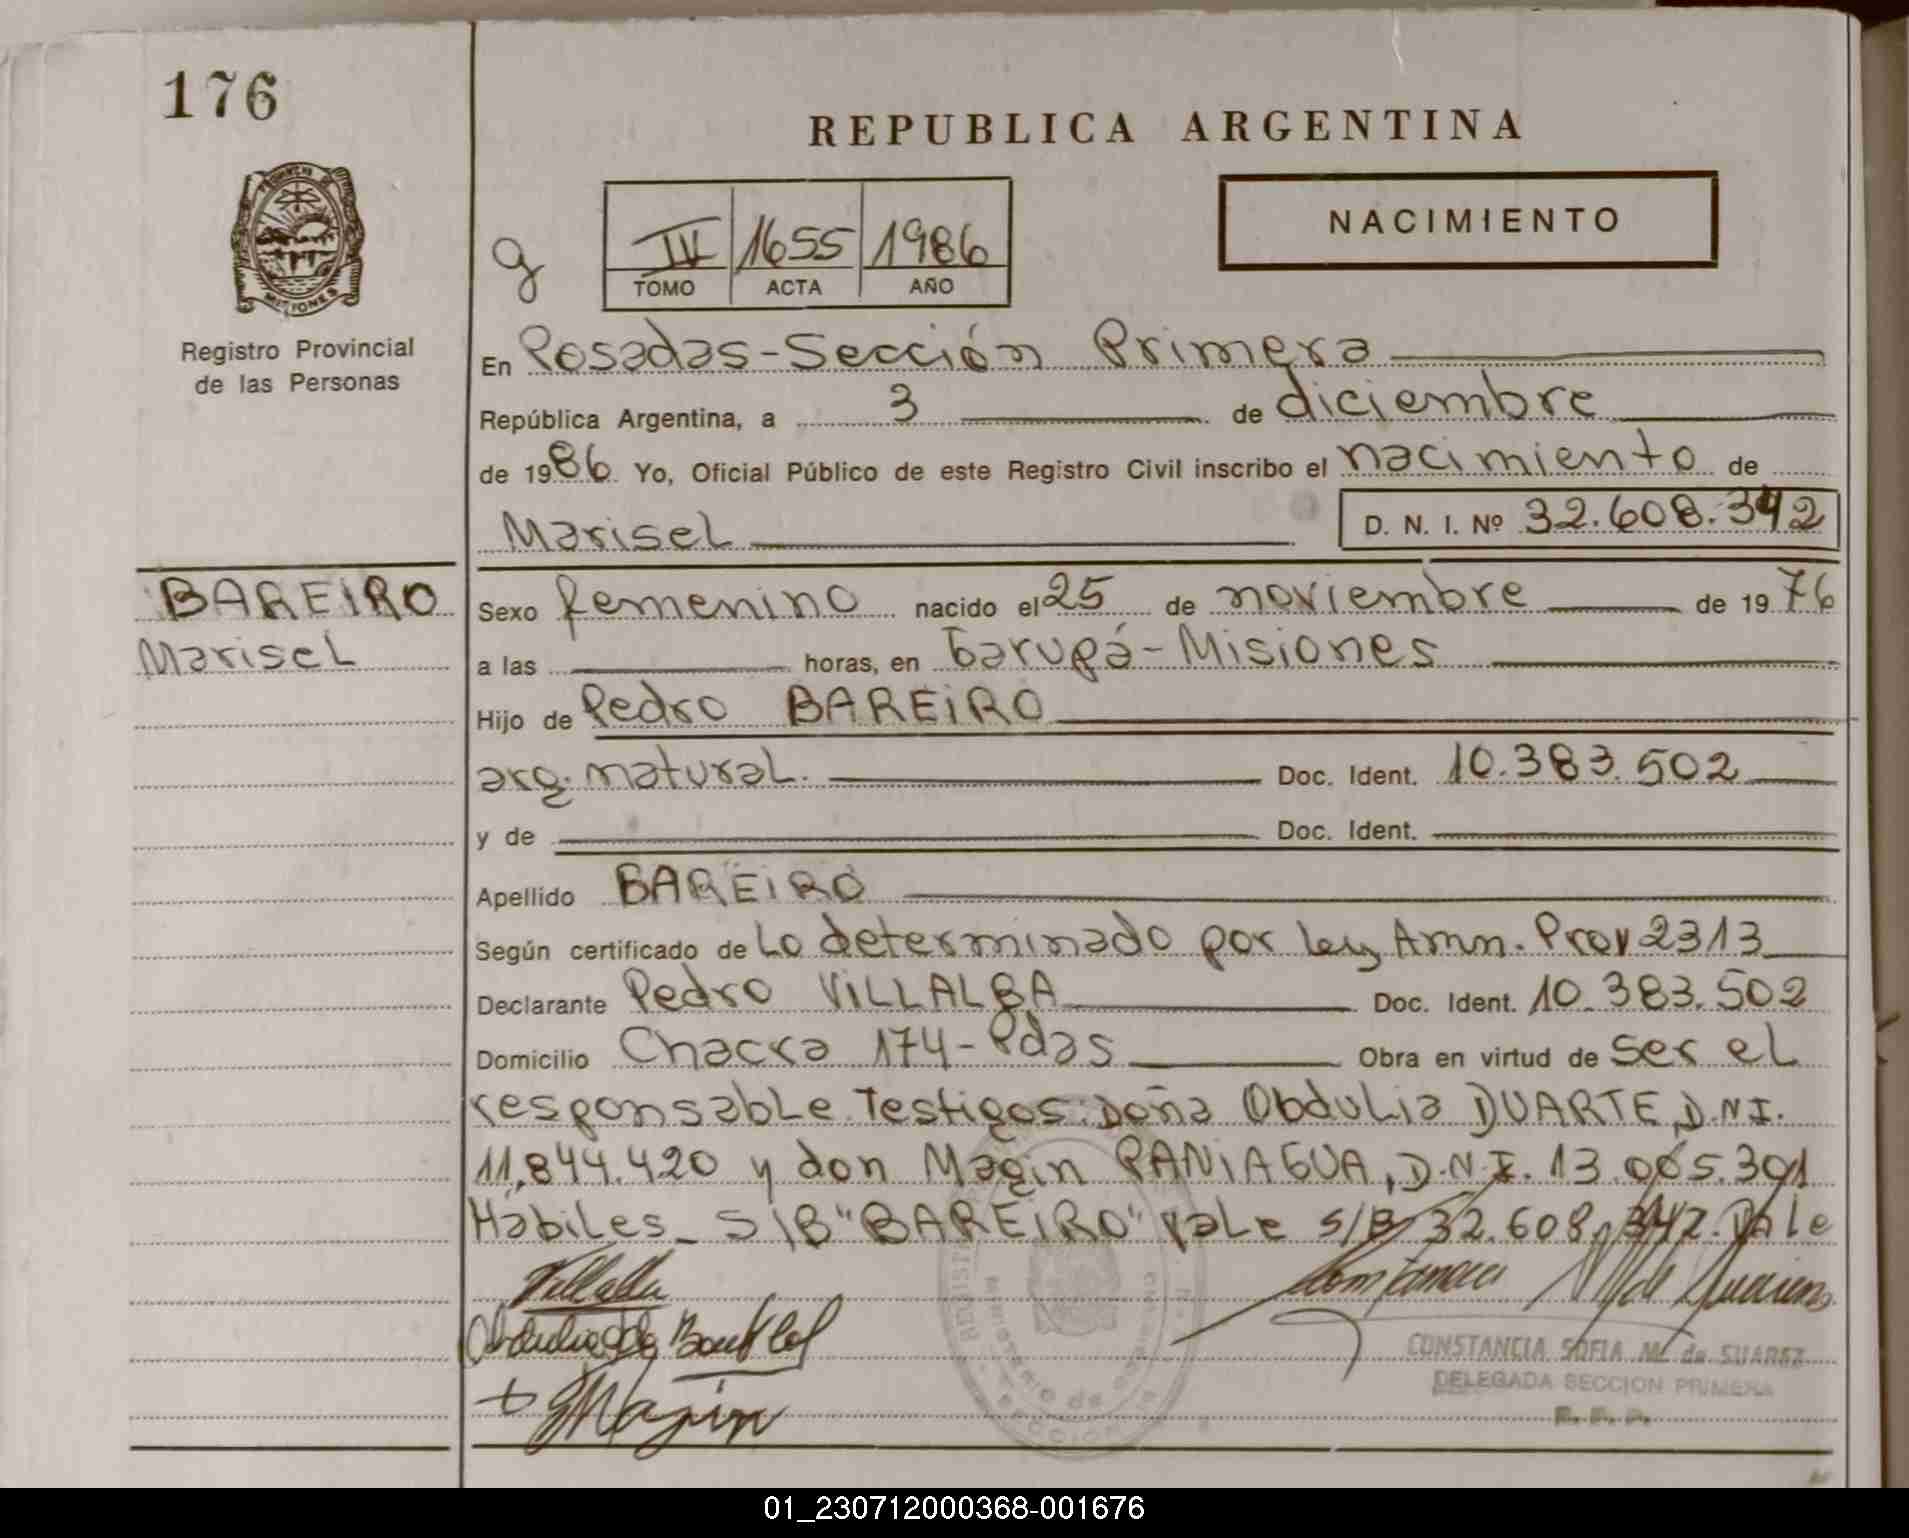 176
REPUBLICA ARGENTINA
NACIMIENTO
g
IV 1655 1986
TOMO ACTA AÑO
PROVINCIA DE
MISIONES
Registro Provincial
de las Personas
En Posadas-Sección Primera
República Argentina, a 3 de diciembre
de 1986 Yo, Oficial Público de este Registro Civil inscribo el nacimiento de
Marisel D. N. I. Nº 32.608.342
BAREIRO
Marisel
Sexo femenino nacido el 25 de noviembre de 1976
a las horas, en Garupá-Misiones
Hijo de Pedro BAREIRO
arg. natural. Doc. Ident. 10.383.502
y de Doc. Ident.
Apellido BAREIRO
Según certificado de Lo determinado por Ley Amn. Prov 2313
Declarante Pedro VILLALBA Doc. Ident. 10.383.502
Domicilio Chacra 174-Pdas Obra en virtud de ser el
responsable. Testigos: Doña Obdulia DUARTE, D.N.I.
11.844.420 y don Magin PANIAGUA, D.N.I. 13.005.301
Hábiles_ S/B "BAREIRO" vale S/B 32.608.342. Vale
Villalba
Magin
CONSTANCIA SOFIA M. de SUAREZ
DELEGADA SECCION PRIMERA
01_230712000368-001676